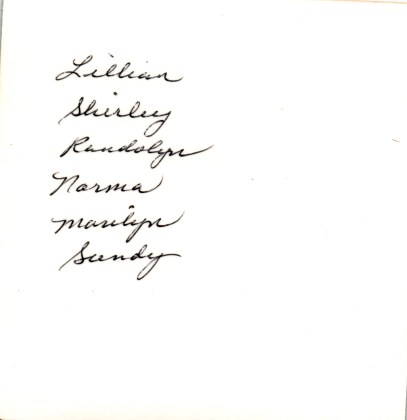 Lillian
Shirley
Randolyn
Norma
Marilyn
Sundy